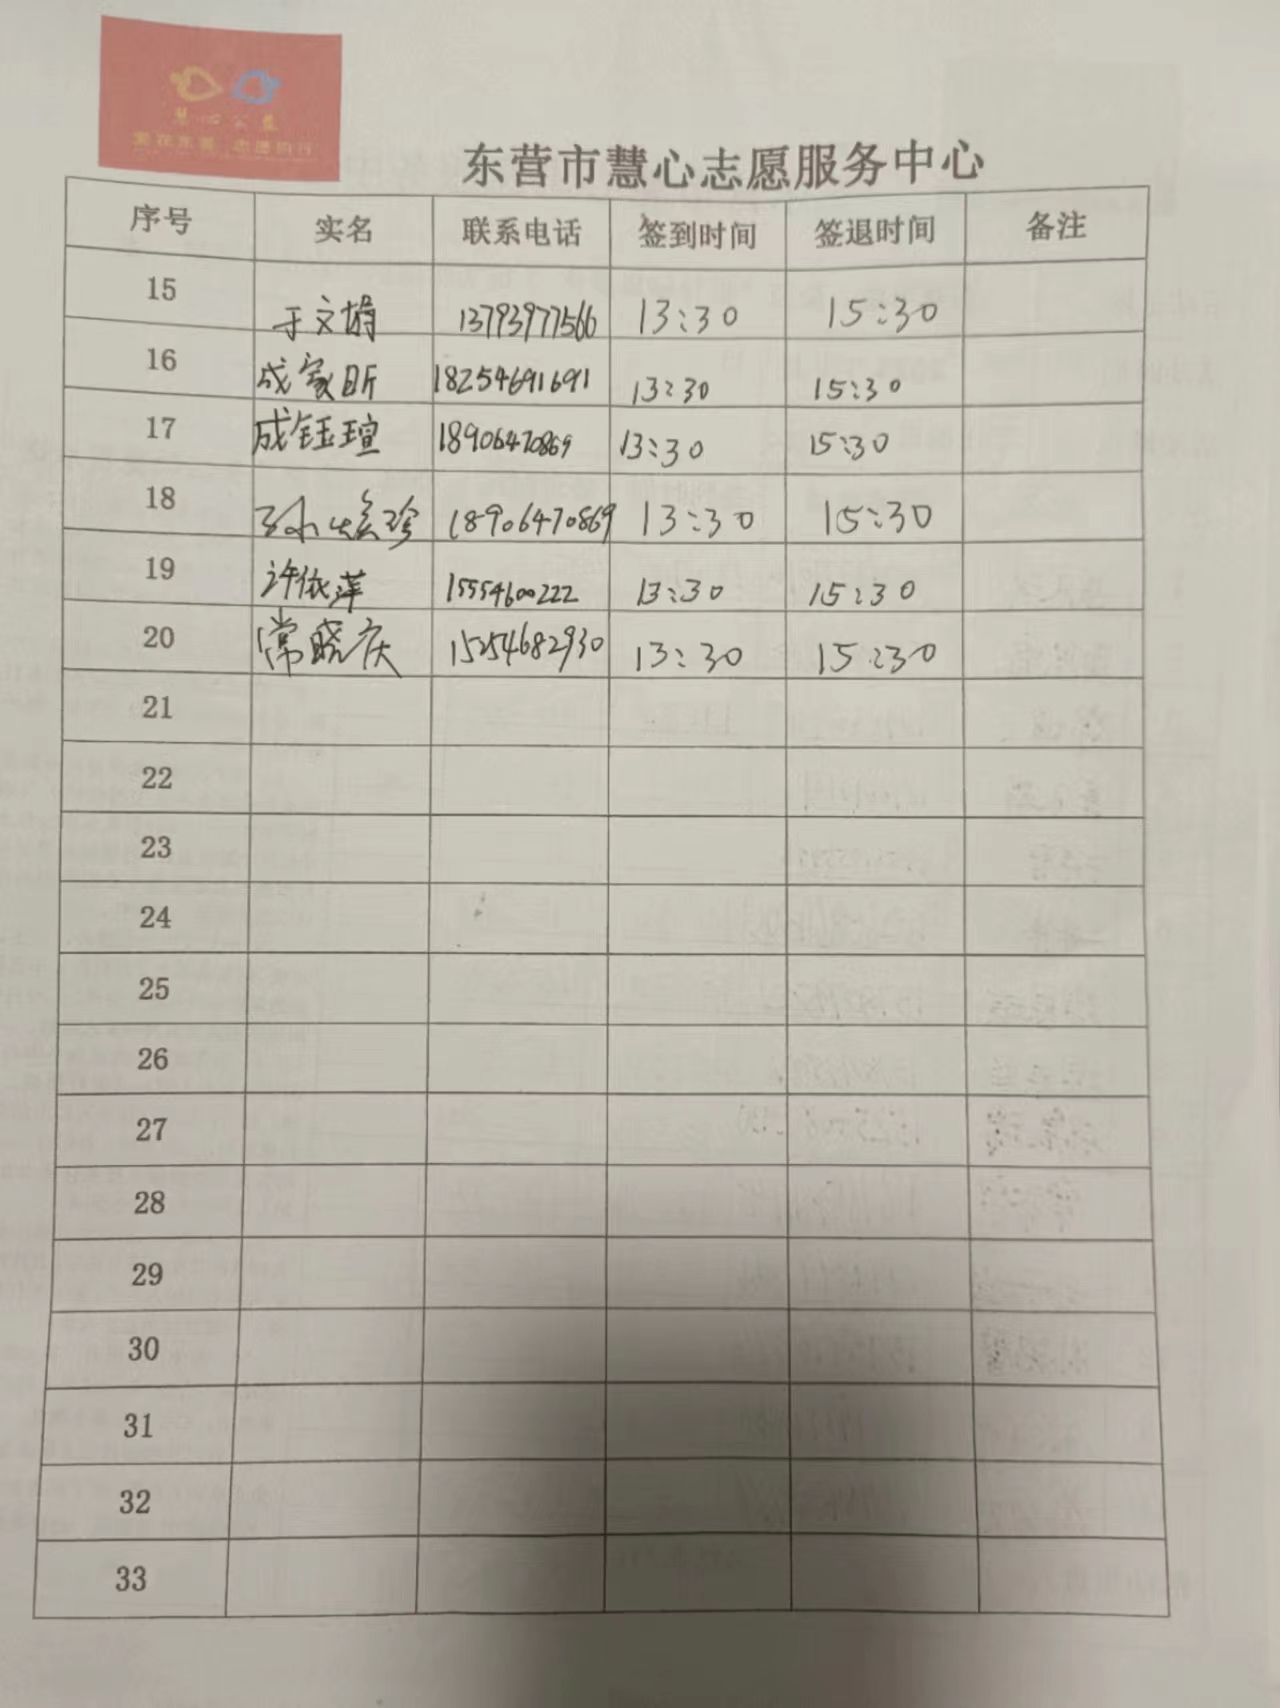 慧心公益
爱在东营 志愿同行
东营市慧心志愿服务中心
序号 实名 联系电话 签到时间 签退时间 备注
15 于文娟 13793977566 13:30 15:30
16 成家昕 18254691691 13:30 15:30
17 成钰瑄 18906470869 13:30 15:30
18 孙 珍 18906470869 13:30 15:30
19 许依萍 15554600222 13:30 15:30
20 常晓庆 15254682930 13:30 15:30
21
22
23
24
25
26
27
28
29
30
31
32
33